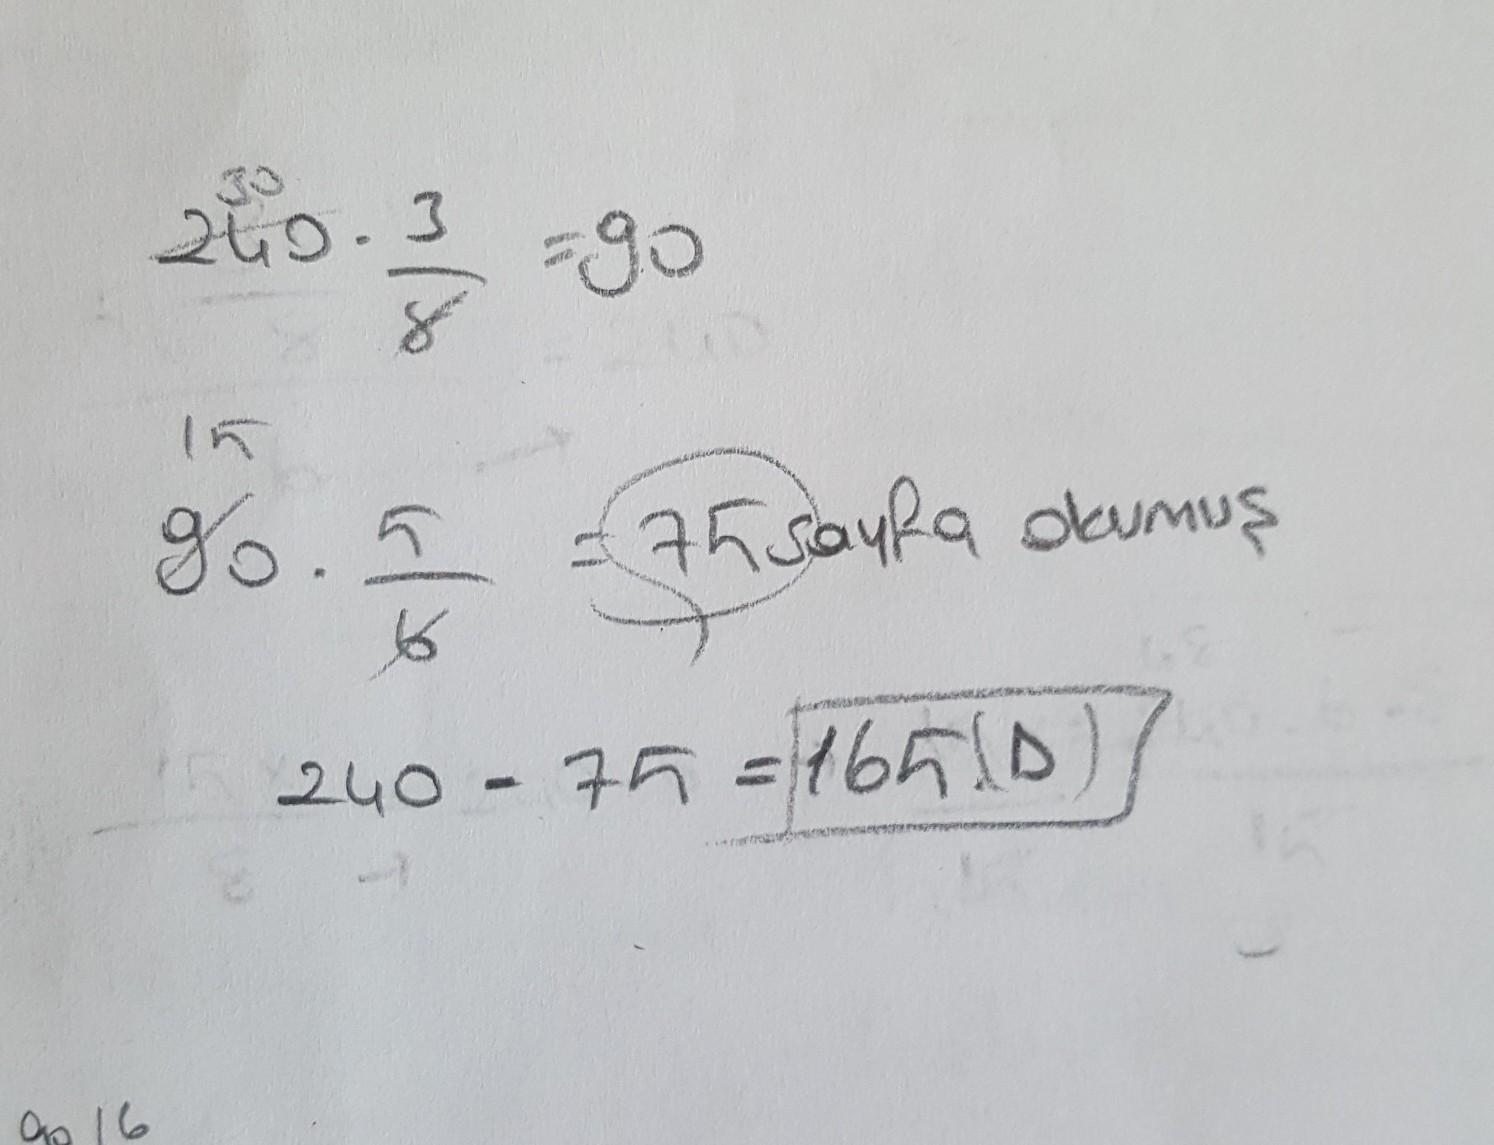 30
240 . 3/8 = 90
15
90 . 5/6 = 75 sayfa okumuş
240 - 75 = 165 (D)
90 | 6